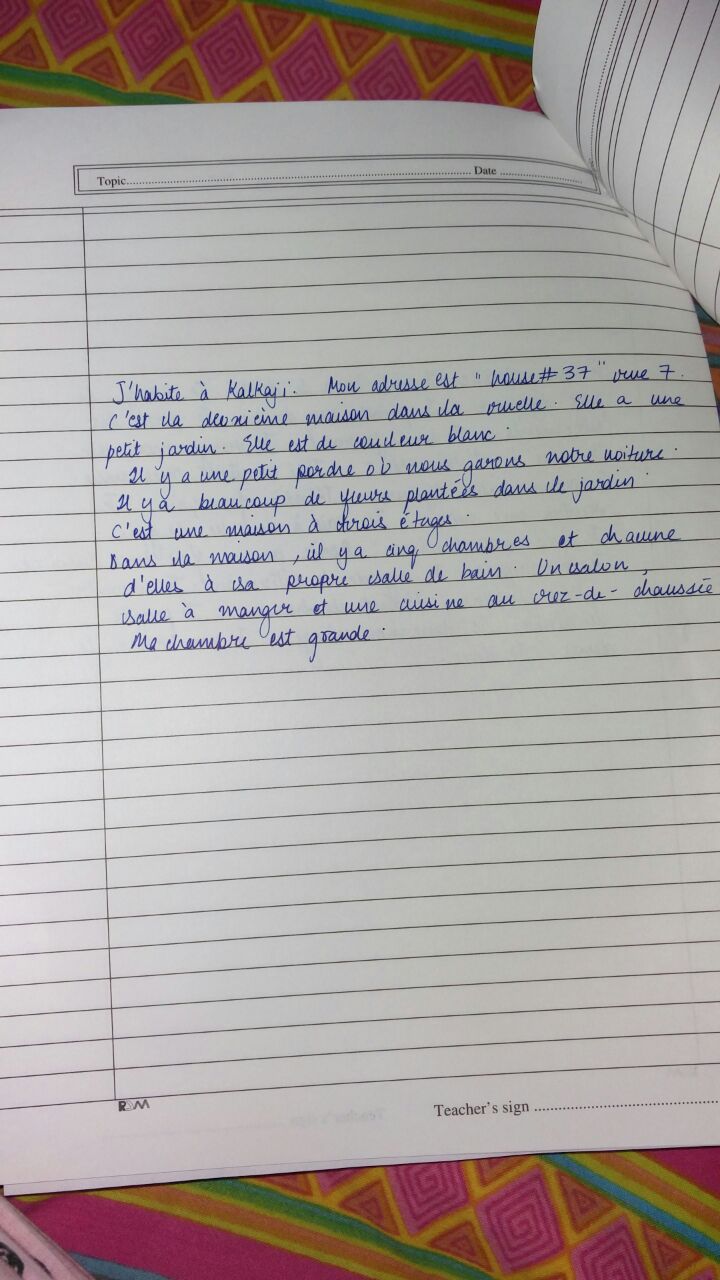 Topic................ Date ................
J'habite à Kalkaji. Mon adresse est "house# 37" rue 7.
C'est la deuxième maison dans la ruelle. Elle a une
petit jardin. Elle est de couleur blanc.
Il y a une petit pordre où nous garons notre voiture.
Il y a beaucoup de fleurs plantées dans le jardin
C'est une maison à trois étages.
Dans la maison, il y a cinq chambres et chacune
d'elles à sa propre salle de bain. Un salon,
salle à manger et une cuisine au rez-de-chaussée
Ma chambre est grande.
Teacher's sign ................